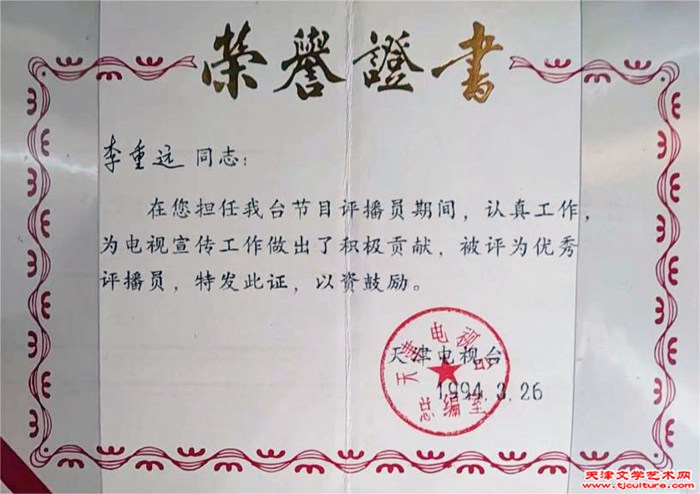 榮譽證書
李重远 同志：
在您担任我台节目评播员期间，认真工作，
为电视宣传工作做出了积极贡献，被评为优秀
评播员，特发此证，以资鼓励。
天津电视台
天津电视台
总编室
1994.3.26
天津文学艺术网
www.tjculture.com